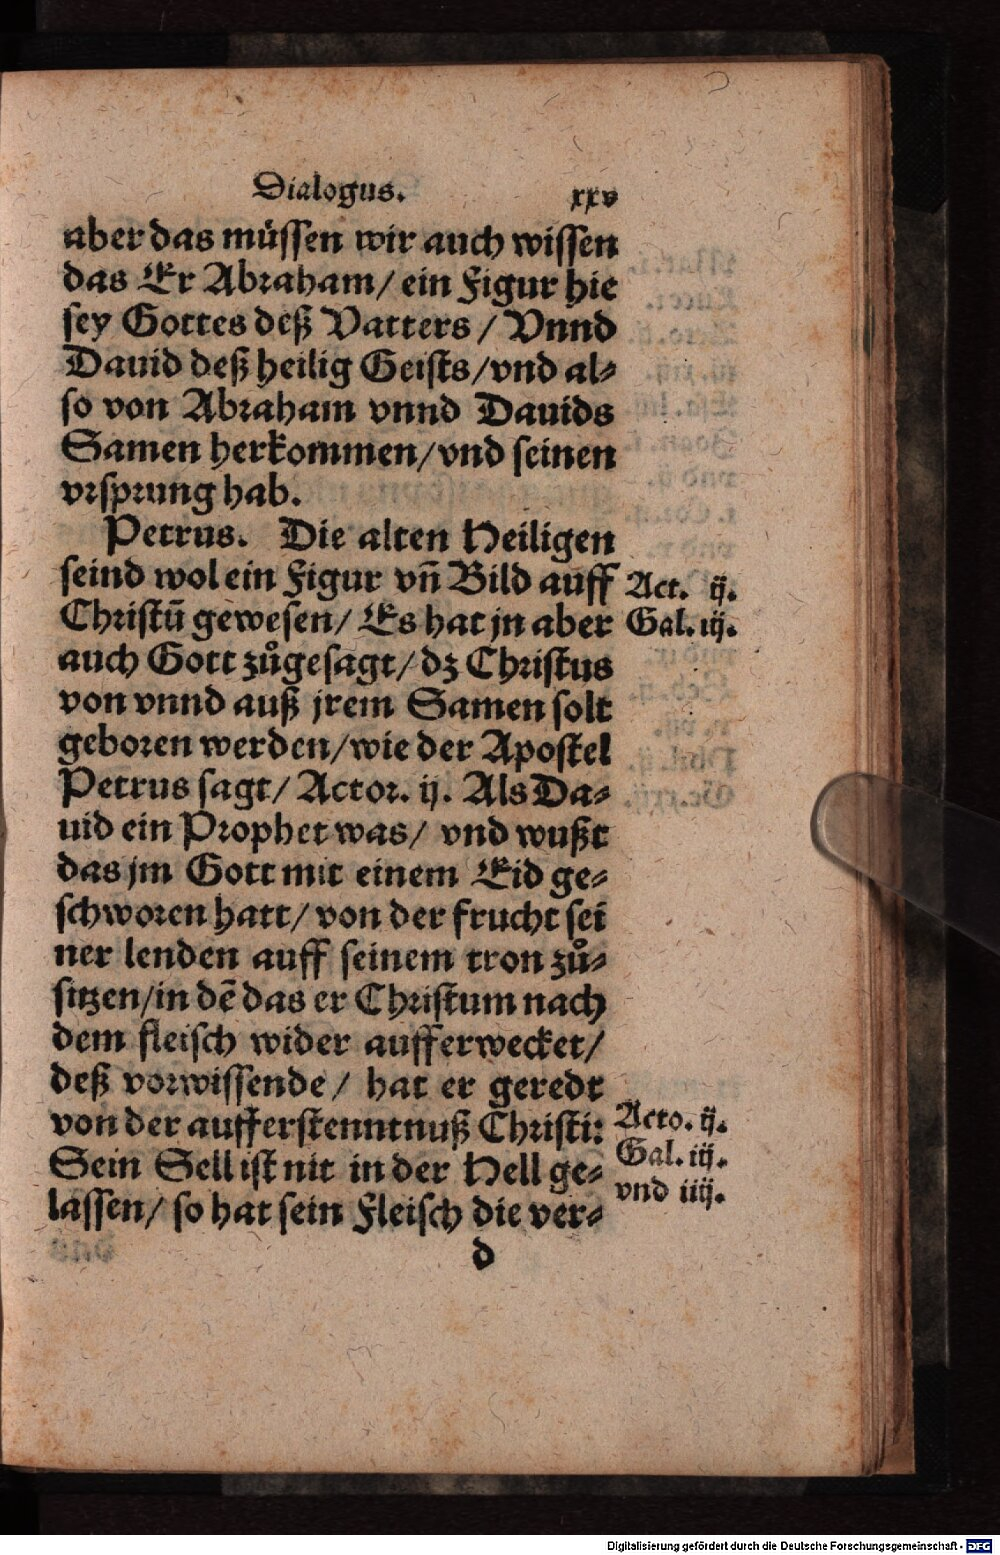 Dialogus. xxv
aber das müssen wir auch wissen
das Er Abraham/ ein Figur hie
sey Gottes deß Vatters / Vnnd
Dauid deß heilig Geists/vnd al⸗
so von Abraham vnnd Dauids
Samen herkommen/vnd seinen
vrsprung hab.
Petrus. Die alten Heiligen
seind wol ein Figur vn̄ Bild auff
Act. ij.
Christū gewesen/ Es hat jn aber
Gal. iij.
auch Gott zůgesagt/ dz Christus
von vnnd auß jrem Samen solt
geboren werden/wie der Apostel
Petrus sagt/ Actor. ij. Als Da⸗
uid ein Prophet was/ vnd wußt
das jm Gott mit einem Eid ge⸗
schworen hatt/ von der frucht sei
ner lenden auff seinem tron zů⸗
sitzen/in dē das er Christum nach
dem fleisch wider aufferwecket/
deß vorwissende / hat er geredt
von der aufferstenntnuß Christi:
Acto. ij.
Sein Sell ist nit in der Hell ge⸗
Gal. iij.
vnd iiij.
lassen/ so hat sein Fleisch die ver⸗
d
Digitalisierung gefördert durch die Deutsche Forschungsgemeinschaft - DFG